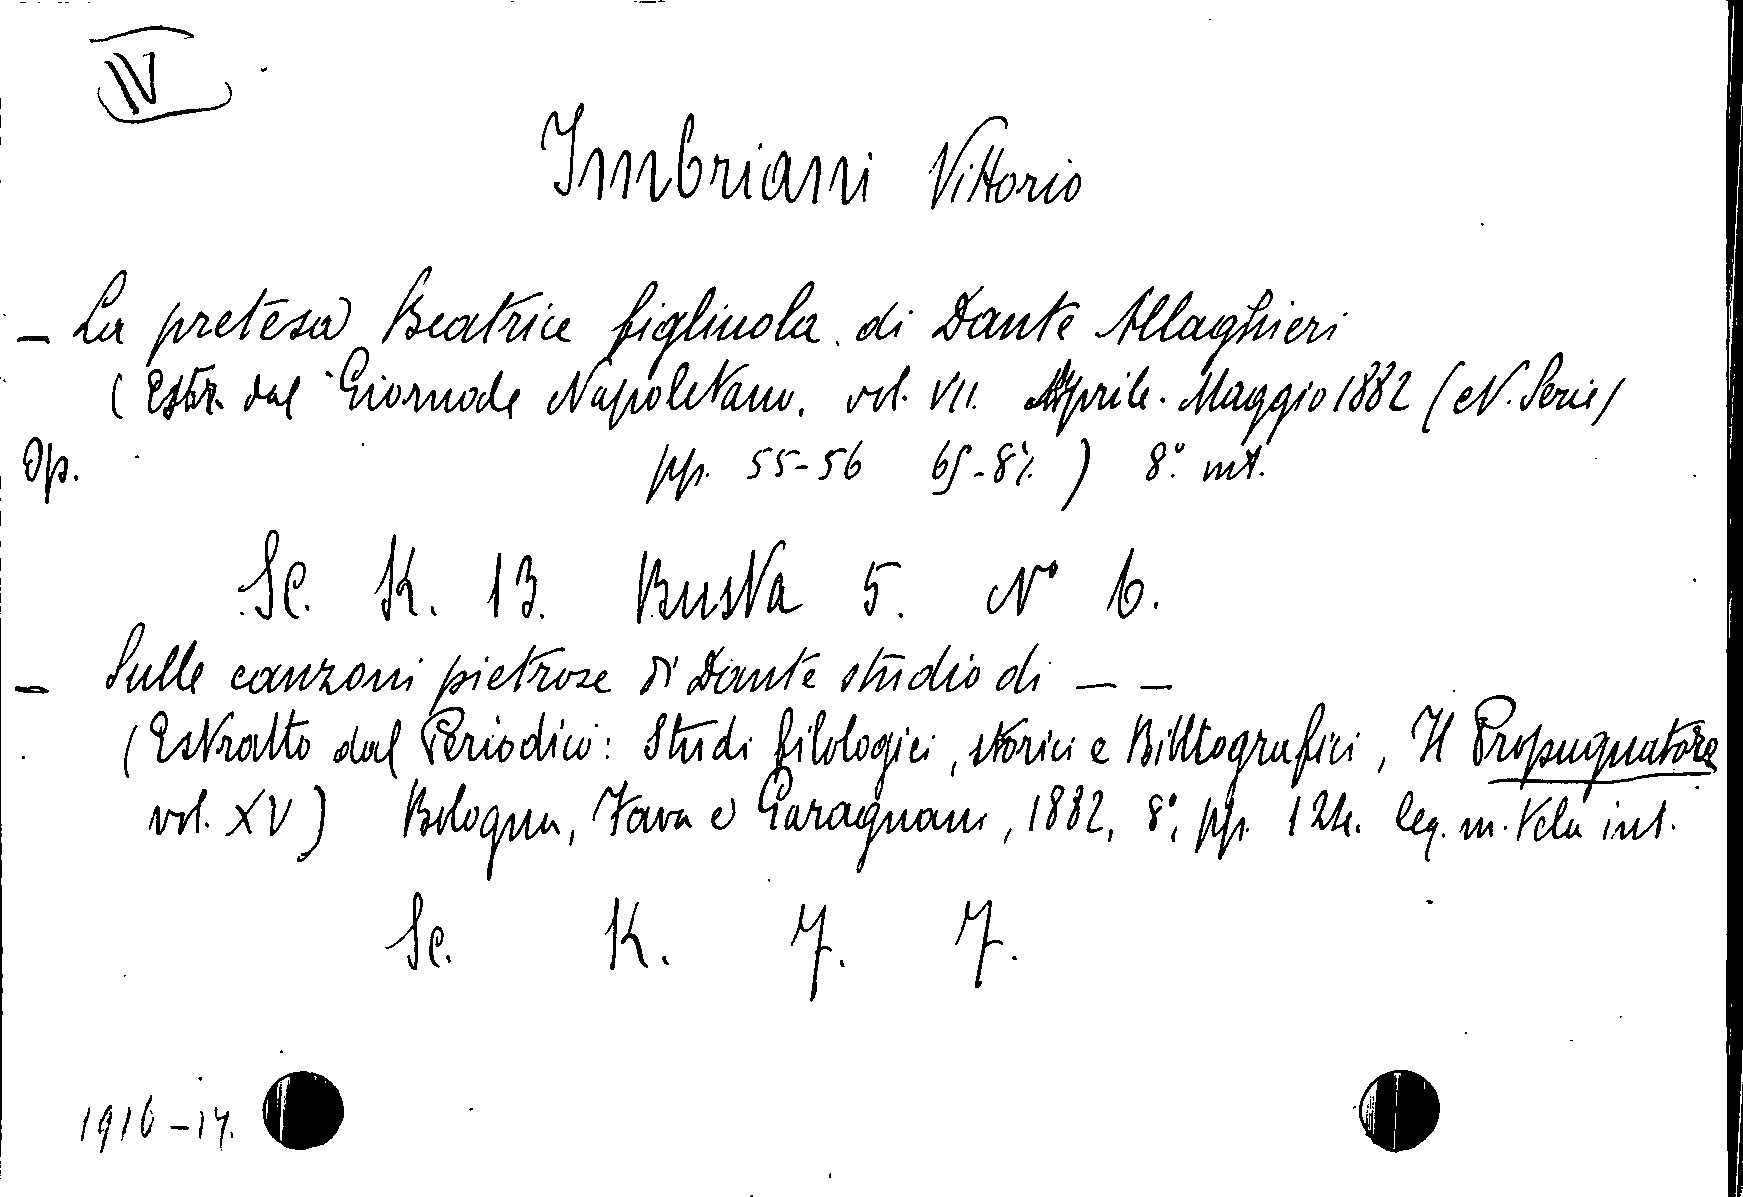 IV
Imbriani Vittorio
- La pretesa Beatrice figliuola di Dante Allaghieri
(Estr. dal Giornale Napoletano. vol. VII. Aprile. Maggio 1882 (N. Serie)
Op. pp. 55-56 65-87.) 8º. int.
Sc. K. 13. Busta 5. Nº 6.
- Sulle canzoni pietrose di Dante studio di - -
(Estratto dal Periodico: Studi filologici, storici e Bibliografici, Il Propugnatore
vol. XV) Bologna, Fava e Garagnani, 1882, 8º, pp. 124. leg. m. tela int.
Sc. K. 7. 7.
1916-17.